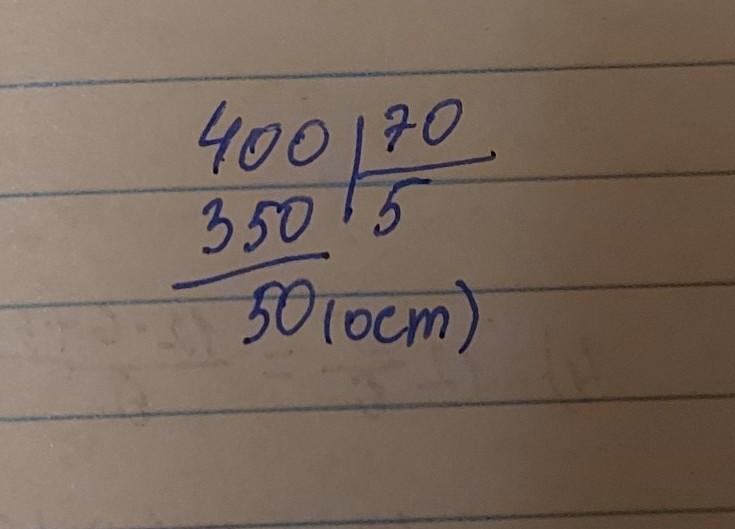 400 | 70
350 | 5
50 (ост)